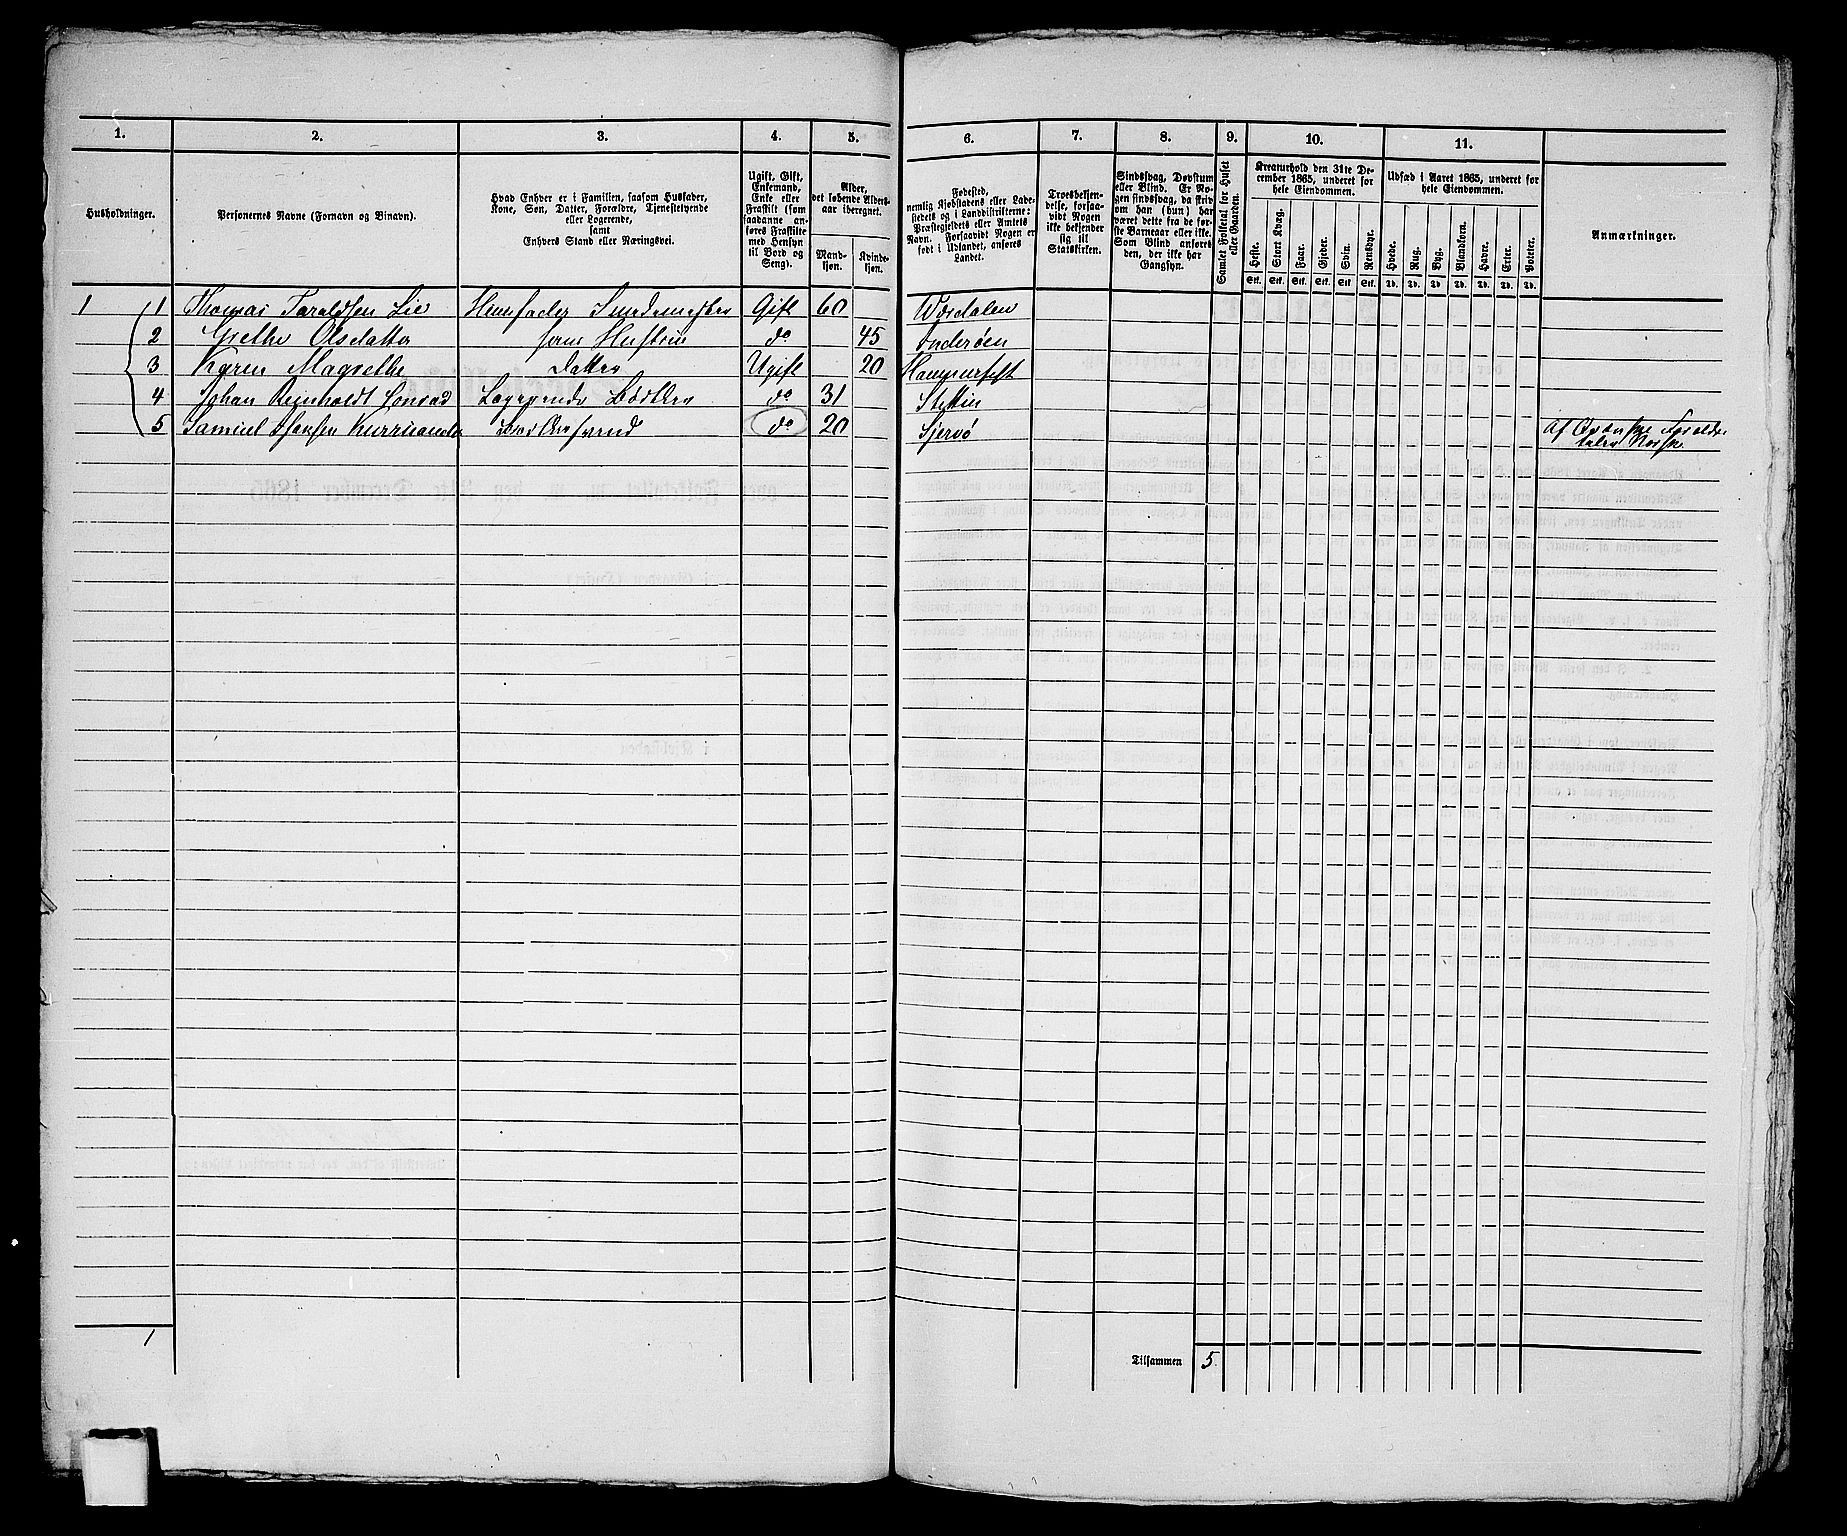 1. 2. 3. 4. 5. 6. 7. 8. 9. 10. 11.
Husholdninger.
Personernes Navne (Fornavn og Binavn).
Hvad Enhver er i Familien, saasom Husfader,
Kone, Søn, Datter, Forældre, Tjenestetyende
eller Logerende,
samt
Enhvers Stand eller Næringsvei.
Ugift, Gift,
Enkemand,
Enke eller
Fraskilt (som
saadanne an-
føres Fraskilte
med Hensyn
til Bord og
Seng).
Alder,
det løbende Alders-
aar iberegnet.
Mand-
kjøn.
Kvinde-
kjøn.
Fødested,
nemlig Kjøbstadens eller Lade-
stedets og i Landdistrikterne:
Præstegjeldets eller Amtets
Navn. Forsaavidt Nogen er
født i Udlandet, anføres
Landet.
Troesbekjen-
delse, forsaa-
vidt Nogen
ikke bekjender
sig til
Statskirken.
Sindssvag, Døvstum
eller Blind. Er No-
gen sindssvag, da skriv
om han (hun) har
været dette fra de før-
ste Barneaar eller ikke.
Som Blind anføres
den, der ikke har
Gangsyn.
Samlet Folketal for Huset
eller Gaarden.
Kreaturhold den 31te De-
cember 1865, underet for
hele Eiendommen.
Heste. Stort Kvæg. Faar. Gjeder. Svin. Rensdyr.
Stk. Stk. Stk. Stk. Stk. Stk.
Udsæd i Aaret 1865, underet for
hele Eiendommen.
Hvede. Rug. Byg. Blandkorn. Havre. Erter. Poteter.
Td. Td. Td. Td. Td. Td. Td.
Anmærkninger.
1 1 Thomas Taraldsen Lie Huusfader Gift 60 Værdalen
2 Grethe Olsdatter hans Hustrue do 45 Inderøen
3 Karen Magrethe Datter Ugift 20 Hammerfest
4 Johan Reinholdt Conrad Logerende Bødker do 31 Stettin
5 Samuel Hansen do 20 Skjervø Af Qvænske Forældre
taler Norsk.
1
Tilsammen 5.